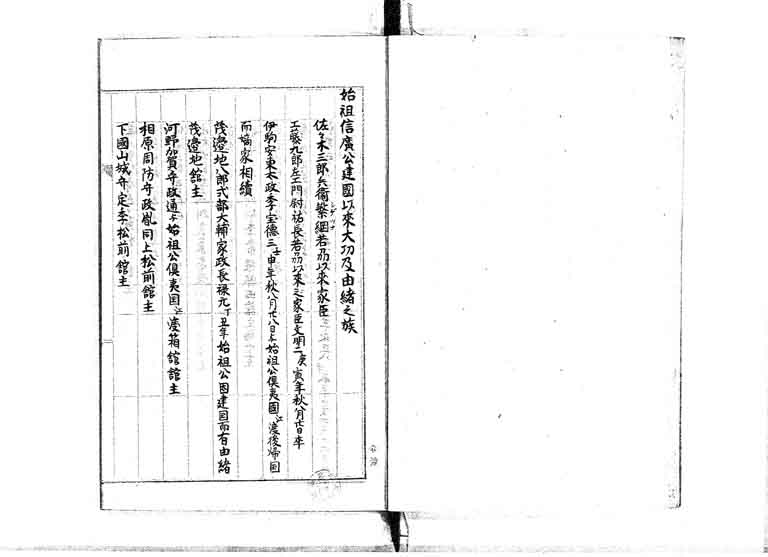 始祖信廣公建國以來大功及由緒之族
佐々木三郎兵衛繁綱若刕以來家臣
工藤九郎左衛門尉祐長若刕以來之家臣文明二庚寅年秋八月廿日卒
伊駒安東太政季宝德三壬申年秋八月廿八日与始祖公俱夷國江渡後帰国
而嫡家相續
茂邊地八郎式部大輔家政長禄元丁丑年始祖公因建国而有由緒
茂邊地館主
河野加賀守政通与始祖公俱夷国江渡箱館館主
相原周防守政胤同上松前館主
下國山城守定季松前館主